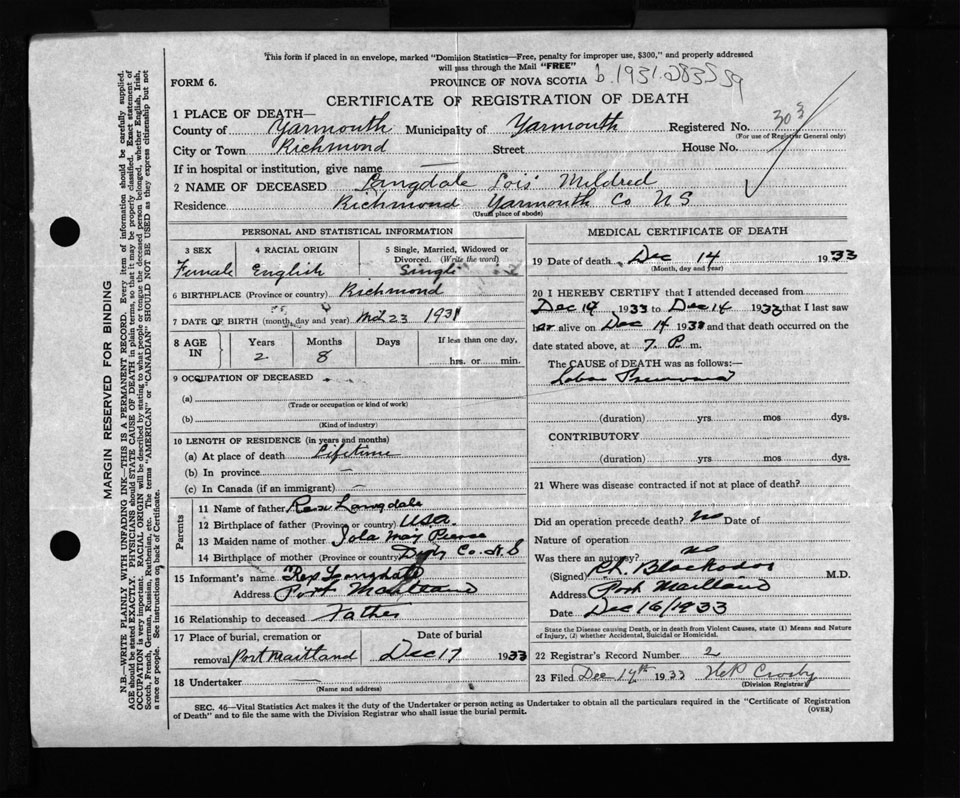 This form if placed in an envelope, marked "Dominion Statistics—Free, penalty for improper use, $300," and properly addressed
will pass through the Mail "FREE"
FORM 6.
PROVINCE OF NOVA SCOTIA b.1931.
CERTIFICATE OF REGISTRATION OF DEATH
1 PLACE OF DEATH—
County of Yarmouth Municipality of Yarmouth Registered No. 303
(For use of Registrar General only)
City or Town Richmond Street House No.
If in hospital or institution, give name —
2 NAME OF DECEASED Langdale Lois Mildred
Residence Richmond Yarmouth Co NS
(Usual place of abode)
PERSONAL AND STATISTICAL INFORMATION
3 SEX
Female
4 RACIAL ORIGIN
English
5 Single, Married, Widowed or
Divorced. (Write the word)
Single
6 BIRTHPLACE (Province or country) Richmond
7 DATE OF BIRTH (month, day and year) 23 1931
8 AGE IN
Years
2
Months
8
Days
If less than one day,
hrs. or min.
9 OCCUPATION OF DECEASED
(a)
(Trade or occupation or kind of work)
(b)
(Kind of industry)
10 LENGTH OF RESIDENCE (in years and months)
(a) At place of death Lifetime
(b) In province —
(c) In Canada (if an immigrant) —
Parents
11 Name of father Rex Langdale
12 Birthplace of father (Province or country) USA.
13 Maiden name of mother Iola May Pierce
14 Birthplace of mother (Province or country) Digby Co. N.S
15 Informant's name Rex Langdale
Address Port Maitland
16 Relationship to deceased Father
17 Place of burial, cremation or
removal Port Maitland
Date of burial
Dec 17 1933
18 Undertaker —
(Name and address)
MEDICAL CERTIFICATE OF DEATH
19 Date of death Dec 14 1933
(Month, day and year)
20 I HEREBY CERTIFY that I attended deceased from
Dec 14 1933 to Dec 14 1933 that I last saw
her alive on Dec 14 193 and that death occurred on the
date stated above, at 7. P. m.
The CAUSE of DEATH was as follows:—
Lobar Pneumonia
(duration) yrs mos dys.
CONTRIBUTORY
(duration) yrs mos dys.
21 Where was disease contracted if not at place of death?
Did an operation precede death? no Date of
Nature of operation
Was there an autopsy? no
(Signed) Blackadar M.D.
Address Port Maitland
Date Dec 16/1933
State the Disease causing Death, or in death from Violent Causes, state (1) Means and Nature
of Injury, (2) whether Accidental, Suicidal or Homicidal.
22 Registrar's Record Number 2
23 Filed Dec 19th 1933 Crosby
(Division Registrar)
SEC. 46—Vital Statistics Act makes it the duty of the Undertaker or person acting as Undertaker to obtain all the particulars required in the "Certificate of Registration
of Death" and to file the same with the Division Registrar who shall issue the burial permit. (OVER)
MARGIN RESERVED FOR BINDING
N.B.—WRITE PLAINLY WITH UNFADING INK—THIS IS A PERMANENT RECORD. Every item of information should be carefully supplied.
AGE should be stated EXACTLY. PHYSICIANS should STATE CAUSE OF DEATH in plain terms, so that it may be properly classified. Exact statement of
OCCUPATION is very important. RACIAL ORIGIN will be described by stating to what people or tongue the deceased person belonged, whether English, Irish,
Scotch, French, German, Russian, Ruthenian, etc. The terms "AMERICAN" or "CANADIAN" SHOULD NOT BE USED as they express citizenship but not
a race or people. See instructions on back of Certificate.